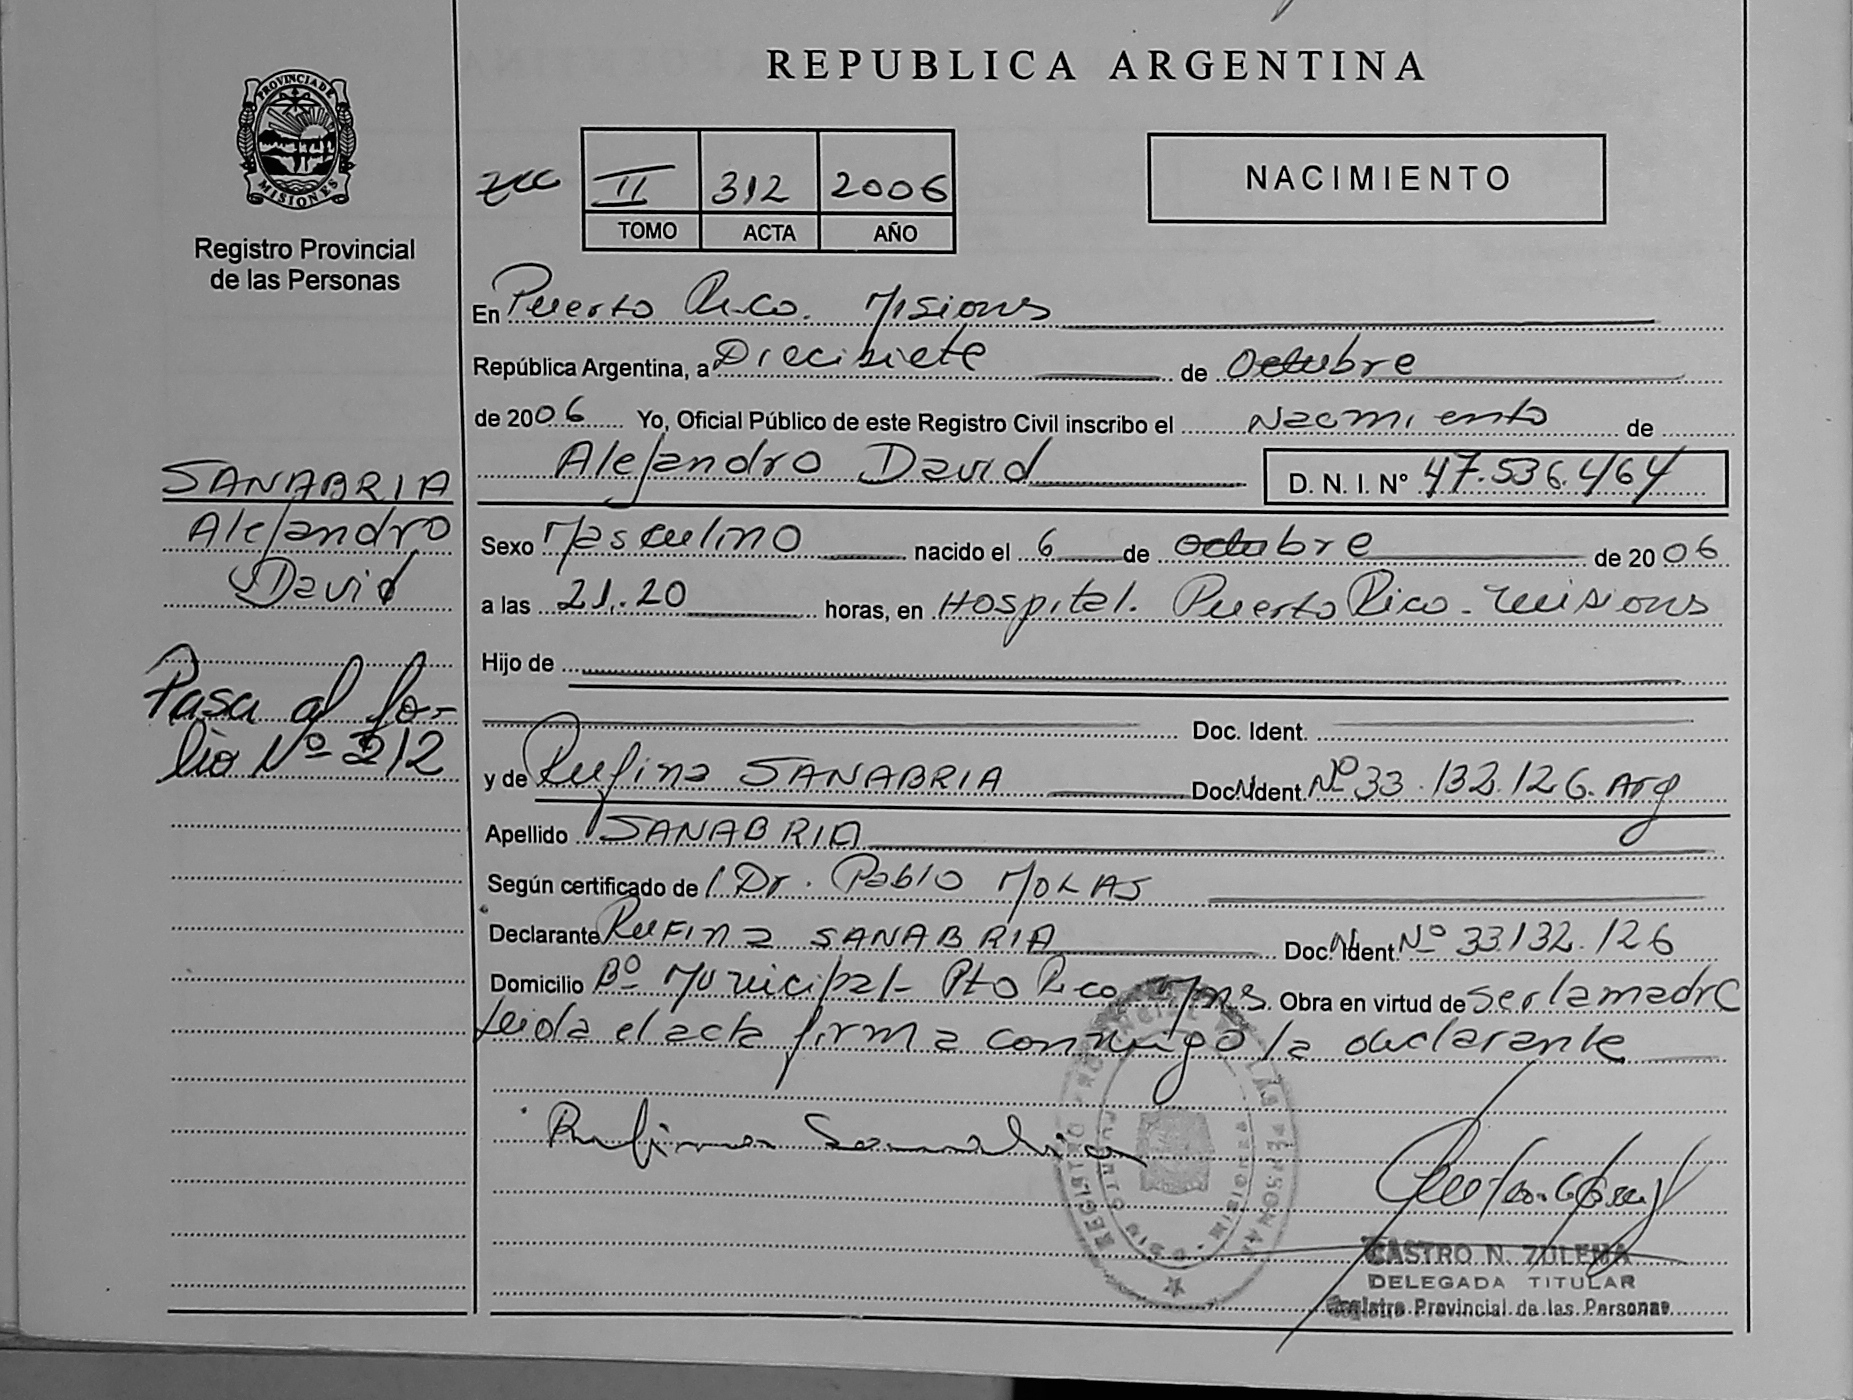 REPUBLICA ARGENTINA
PROVINCIA DE
MISIONES
Registro Provincial
de las Personas
II 312 2006
TOMO ACTA AÑO
NACIMIENTO
En Puerto Rico. Misions
República Argentina, a Diecisiete de Octubre
de 2006 Yo, Oficial Público de este Registro Civil inscribo el Nacimiento de
Alejandro David D. N. I. N° 47.536.464
SANABRIA
Alejandro
David
Sexo Masculino nacido el 6 de octubre de 2006
a las 21.20 horas, en Hospital. Puerto Rico - misions
Hijo de
Pasa al fo-
lio Nº 212
Doc. Ident.
y de Rufina SANABRIA Doc. Ident. Nº 33.132.126. Arg
Apellido SANABRIA
Según certificado de Dr. Pablo MOLAS
Declarante RUFINA SANABRIA Doc. Ident. Nº 33132.126
Domicilio Bº Municipal - Pto Rico Mns. Obra en virtud de ser la madre
Leida el acta firma conmigo la declarante
Rufina Sanabria
REGISTRO PROVINCIAL DE LAS PERSONAS
CASTRO N. ZULEMA
DELEGADA TITULAR
Registro Provincial de las Personas